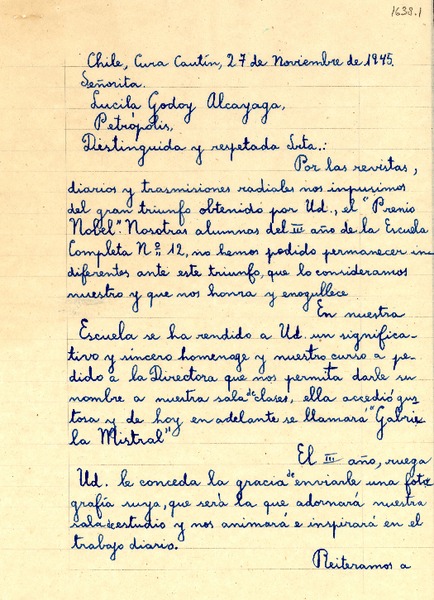 1638.1
Chile, Cura Cautín, 27 de Noviembre de 1945.
Señorita.
Lucila Godoy Alcayaga,
Petrópolis,
Distinguida y respetada Srta.:
Por las revistas,
diarios y trasmisiones radiales nos impusimos
del gran triunfo obtenido por Ud., el "Premio
Nobel". Nosotras alumnas del III año de la Escuela
Completa Nº 12, no hemos podido permanecer in
diferentes ante este triunfo, que lo consideramos
nuestro y que nos honra y enogullece
En nuestra
Escuela se ha rendido a Ud. un significa-
tivo y sincero homenage y nuestro curso a pe-
dido a la Directora que nos permita darle su
nombre a nuestra sala de clases, ella accedió gus
tosa y de hoy en adelante se llamará "Gabrie
la Mistral"
El III año, ruega
Ud. le conceda la gracia de enviarle una foto
grafía suya, que será la que adornará nuestra
sala de estudio y nos animará e inspirará en el
trabajo diario.
Reiteramos a